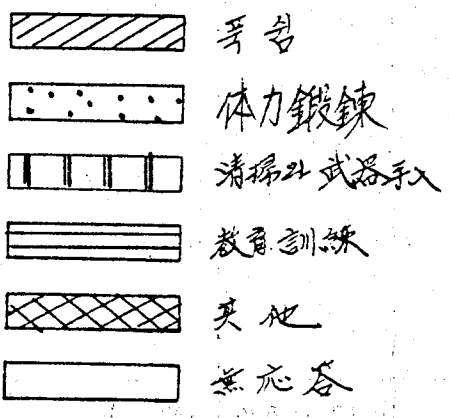 푹 쉼
体力鍛鍊
淸掃와 武器手入
教育訓練
其他
無応答